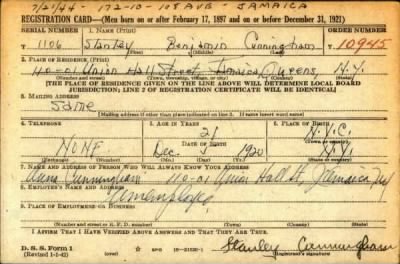 7/21/44 - 172-10-108 AVE - JAMAICA
REGISTRATION CARD—(Men born on or after February 17, 1897 and on or before December 31, 1921)
SERIAL NUMBER 1. NAME (Print) ORDER NUMBER
1106 Stanley Benjamin Cunningham T 10945
(First) (Middle) (Last)
2. PLACE OF RESIDENCE (Print)
110-01 Union Hall Street Jamaica Queens, N.Y.
(Number and street) (Town, township, village, or city) (County) (State)
[THE PLACE OF RESIDENCE GIVEN ON THE LINE ABOVE WILL DETERMINE LOCAL BOARD
JURISDICTION; LINE 2 OF REGISTRATION CERTIFICATE WILL BE IDENTICAL]
3. MAILING ADDRESS
Same
[Mailing address if other than place indicated on line 2. If same insert word same]
4. TELEPHONE 5. AGE IN YEARS 6. PLACE OF BIRTH
21 N.Y.C.
NONE DATE OF BIRTH (Town or county)
Dec 1920 N.Y.
(Exchange) (Number) (Mo.) (Day) (Yr.) (State or country)
7. NAME AND ADDRESS OF PERSON WHO WILL ALWAYS KNOW YOUR ADDRESS
Anna Cunningham 110-01 Union Hall St, Jamaica, NY
8. EMPLOYER'S NAME AND ADDRESS
Unemployed
9. PLACE OF EMPLOYMENT OR BUSINESS
(Number and street or R. F. D. number) (Town) (County) (State)
I AFFIRM THAT I HAVE VERIFIED ABOVE ANSWERS AND THAT THEY ARE TRUE.
D. S. S. Form 1 Stanley Cunningham
(Revised 1-1-42) (over) (Registrant's signature)